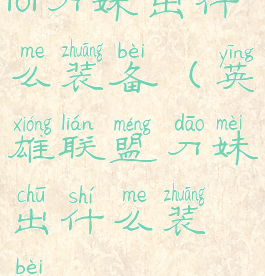 lol刀妹出什
me zhuāng bèi yīng
么装备（英
xióng lián méng dāo mèi
雄联盟刀妹
chū shí me zhuāng
出什么装
bèi